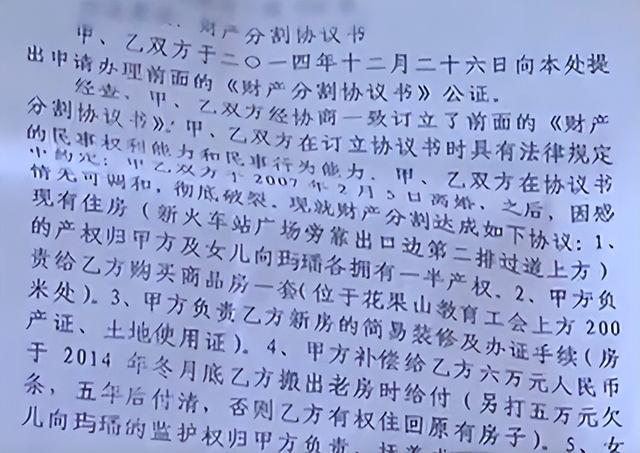 财产分割协议书
甲、乙双方于二〇一四年十二月二十六日向本处提
出申请办理前面的《财产分割协议书》公证。
经查，甲、乙双方经协商一致订立了前面的《财产
分割协议书》，甲、乙双方在订立协议书时具有法律规定
的民事权利能力和民事行为能力。甲、乙双方在协议书
中约定：甲乙双方于2007年2月5日离婚，之后，因感
情无可调和，彻底破裂，现就财产分割达成如下协议：1、
现有住房（新火车站广场旁靠出口边第二排过道上方）
的产权归甲方及女儿向玙璠各拥有一半产权。2、甲方负
责给乙方购买商品房一套（位于花果山教育工会上方200
米处）。3、甲方负责乙方新房的简易装修及办证手续（房
产证、土地使用证）。4、甲方补偿给乙方六万元人民币
于2014年冬月底乙方搬出老房时给付（另打五万元欠
条，五年后付清，否则乙方有权住回原有房子）。5、女
儿向玙璠的监护权归甲方负责，抚养